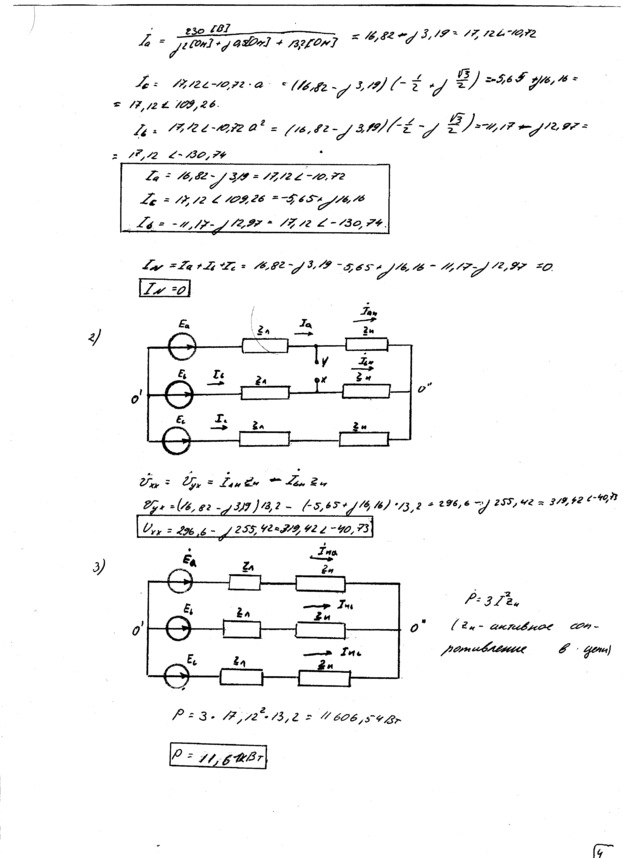 İa = 230 [В] / j2[Ом] + j0,5[Ом] + 13,2[Ом] = 16,82 - j3,19 = 17,12∠-10,72
Ic = 17,12∠-10,72 · a = (16,82 - j3,19)(-1/2 + j√3/2) = -5,65 + j16,16 =
= 17,12∠109,26.
Ib = 17,12∠-10,72 a² = (16,82 - j3,19)(-1/2 - j√3/2) = -11,17 - j12,97 =
= 17,12∠-130,74
Ia = 16,82 - j3,19 = 17,12∠-10,72
Ic = 17,12∠109,26 = -5,65 + j16,16
Ib = -11,17 - j12,97 = 17,12∠-130,74.
IN = Ia + Ib + Ic = 16,82 - j3,19 - 5,65 + j16,16 - 11,17 - j12,97 = 0.
IN = 0
2)
Ea Zл Ia İан Zн
У
Eb Ib Zл х İbн Zн
0' 0"
Ec Ic Zл Zн
U̇хх = U̇ух = İан Zн - İbн Zн
U̇ух = (16,82 - j3,19)13,2 - (-5,65 + j16,16)·13,2 = 296,6 - j255,42 = 319,42∠-40,73
Uхх = 296,6 - j255,42 = 319,42∠-40,73
3)
Ėa Zл İна Zн
Eb Zл Iнb Zн
0' 0"
Ec Zл Iнc Zн
P = 3I²zн
(zн - активное соп-
ротивление в цепи)
P = 3 · 17,12² · 13,2 = 11606,54 Вт
P = 11,6 кВт
4